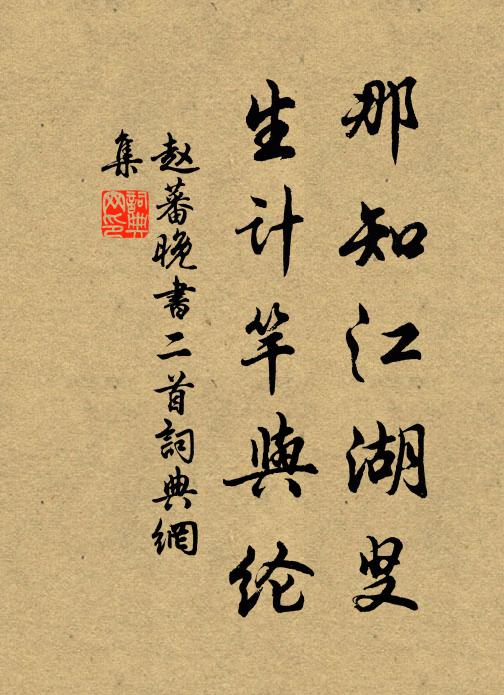 那知江湖叟
生计竿與纶
赵蕃晚書二首詞典網
集
詞典网印